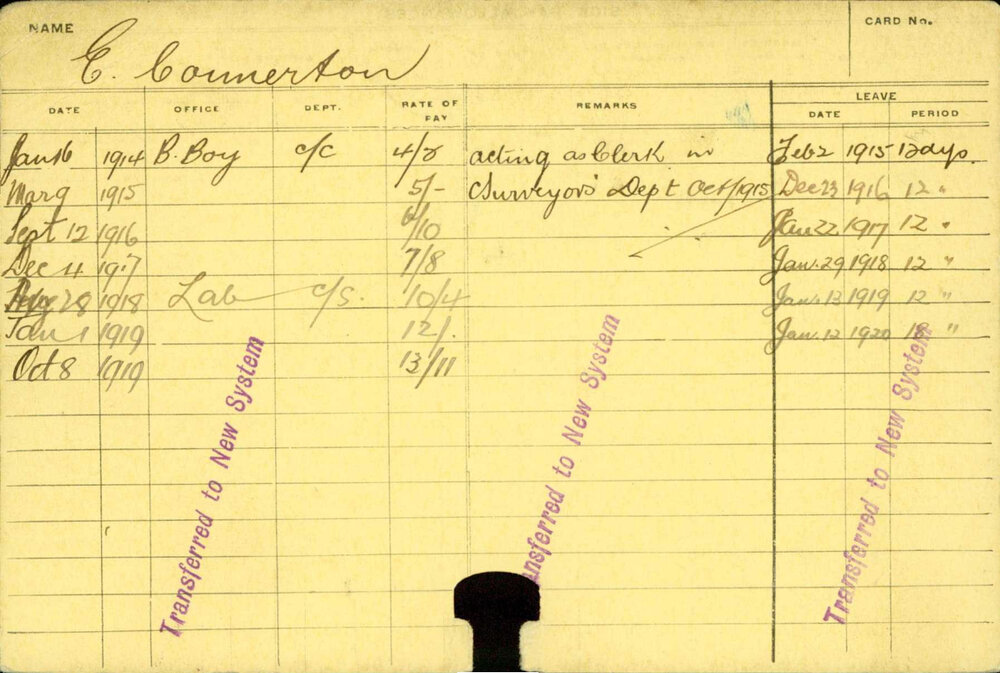 NAME
CARD No.
E. Connerton
LEAVE
DATE OFFICE DEPT. RATE OF PAY REMARKS DATE PERIOD
Jan 16 1914 B. Boy c/c 4/2 acting as Clerk in Feb 2 1915 12 days.
Mar 9 1915 5/- Surveyors' Dept Oct/1915 Dec 23 1916 12 "
Sept 12 1916 6/10 Jan 22 1917 12 "
Dec 4 1917 7/8 Jan. 29 1918 12 "
28 1918 Lab c/s. 10/4 Jan. 13 1919 12 "
Jan 1 1919 12/. Jan. 12 1920 18 "
Oct 8 1919 13/11
Transferred to New System
Transferred to New System
Transferred to New System